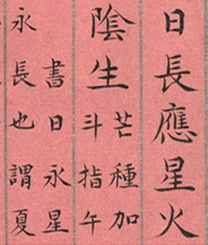 日長應星火
陰生
芒種加
斗指午
書日永星
永長也謂夏